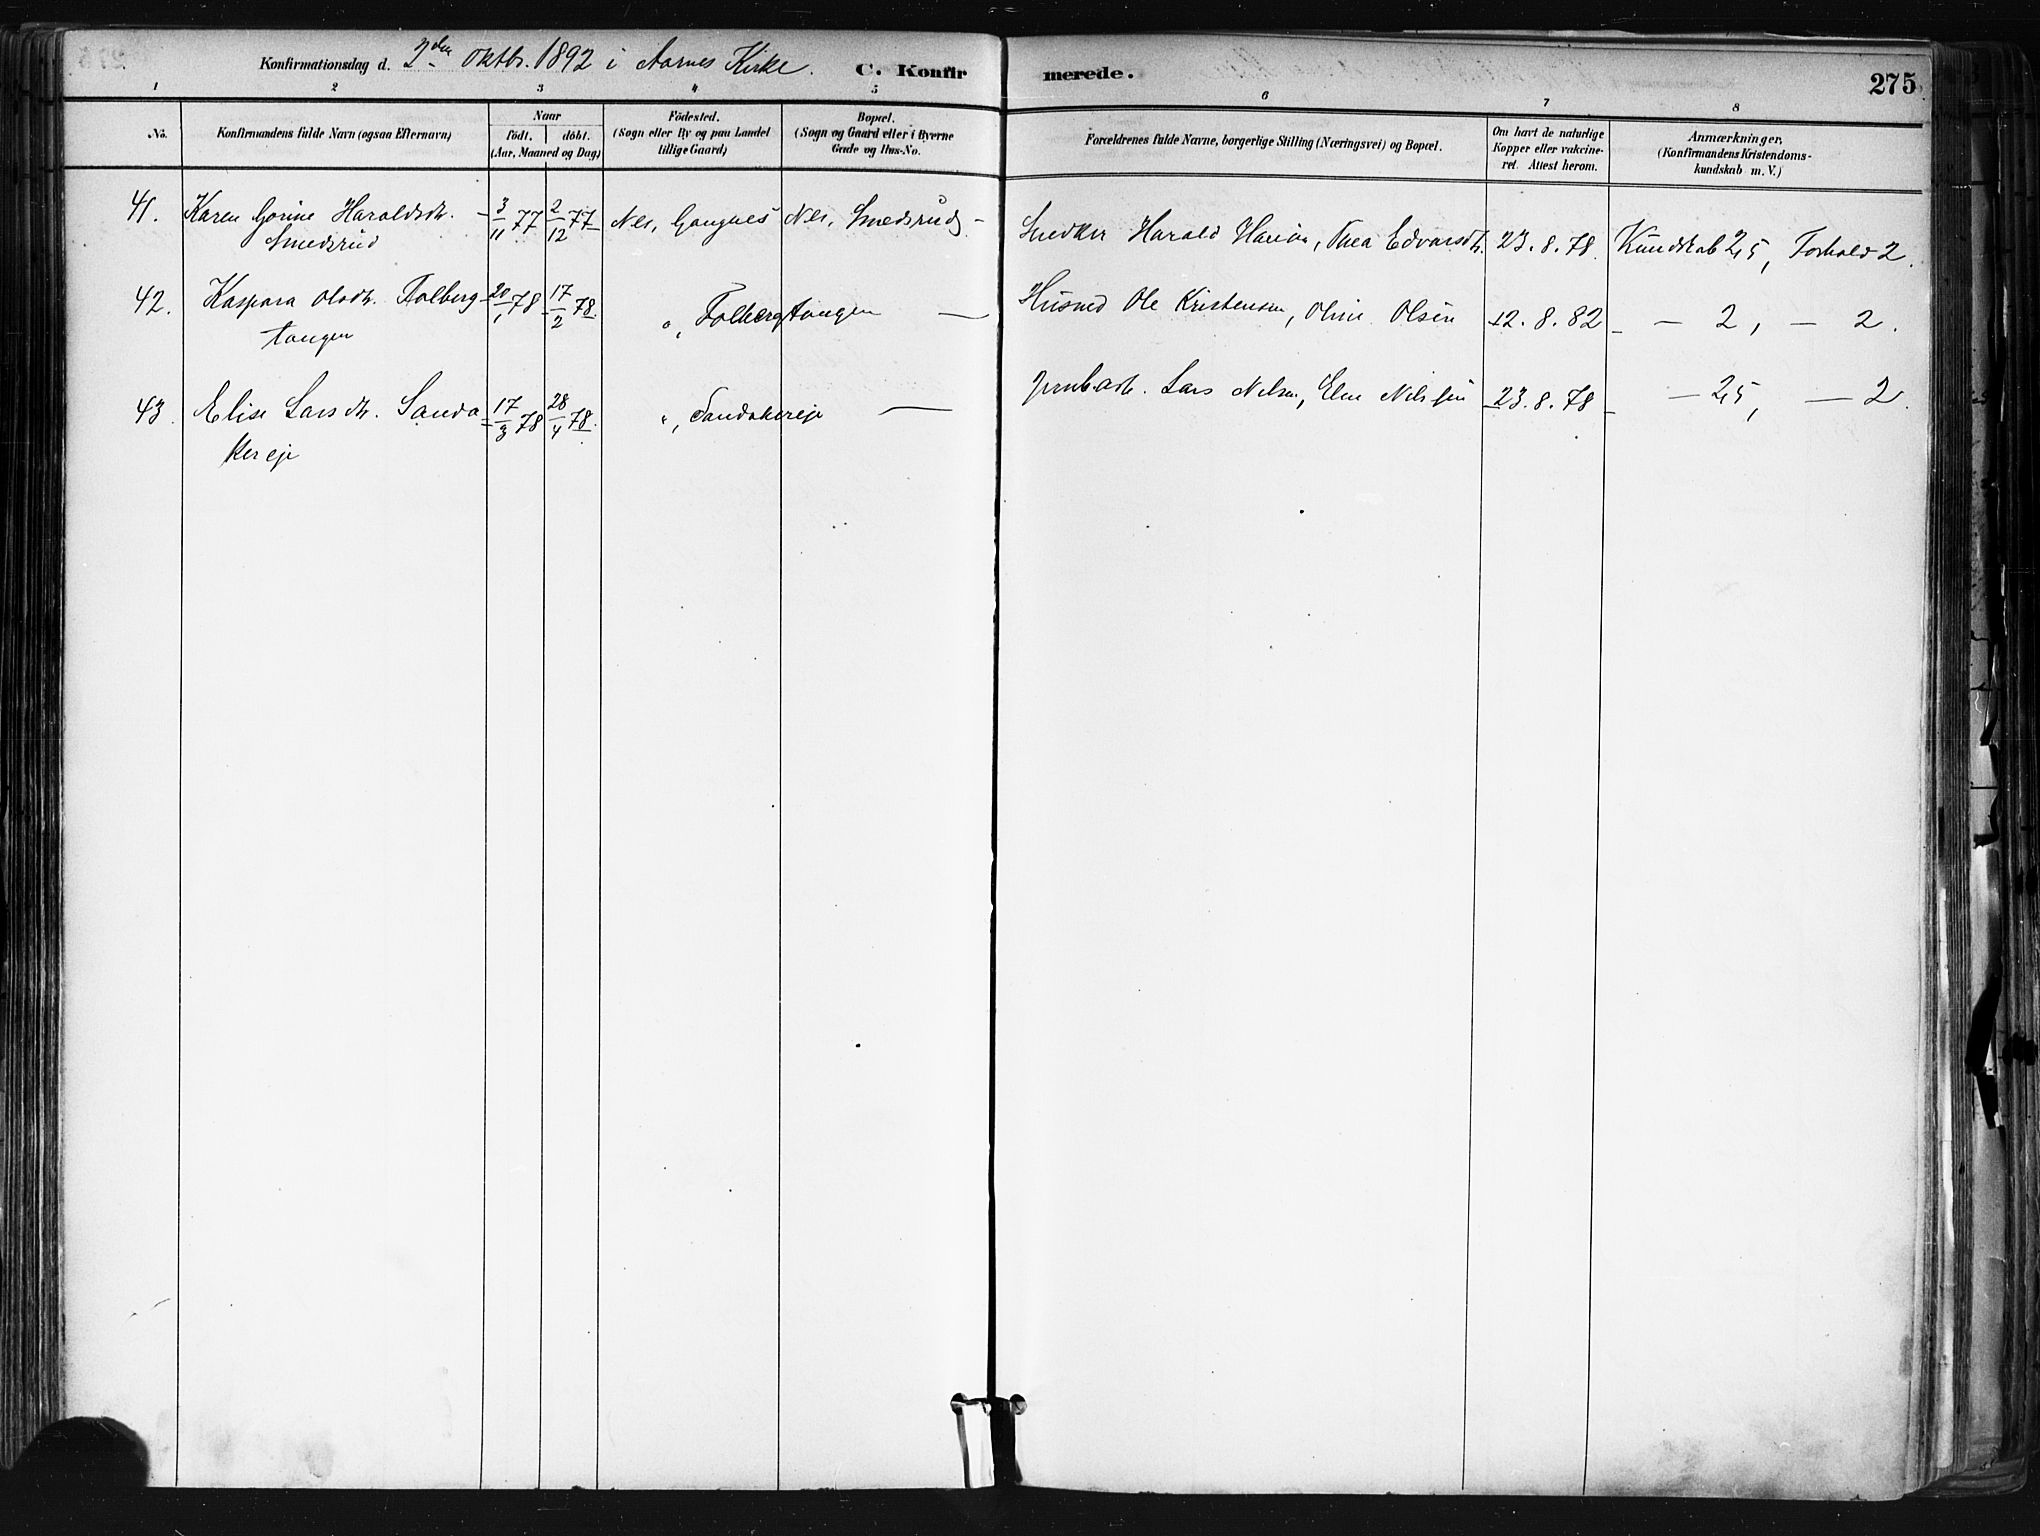 Konfirmationsdag d. 2den Oktbr. 1892 i Aarnes Kirke. C. Konfirmerede. 275
1 2 3 4 5 6 7 8
No. Konfirmandens fulde Navn (ogsaa Efternavn) Naar födt. döbt. (Aar, Maaned og Dag) Födested. (Sogn eller By og paa Landet tillige Gaard) Bopæl. (Sogn og Gaard eller i Byerne Gade og Hus-No. Forældrenes fulde Navne, borgerlige Stilling (Næringsvei) og Bopæl. Om havt de naturlige Kopper eller vakcineret. Attest herom. Anmærkninger, (Konfirmandens Kristendomskundskab m. V.)
41. Karen Gorine Haraldsdt. - 3/11 77 2/12 77 Nes, Gangnes Nes, Smedsrud - Snedker Harald Hansen, Thea Edvardsdt. 23.8.78. Kundskab 2,5, Forhold 2.
Smedsrud
42. Kaspara Olsdt. Folberg 20/1 78 17/2 78. ", Folbergtangen — Husmd Ole Kristensen, Oline Olsen 12.8.82 — 2, — 2.
tangen
43. Elise Larsdt. Sanda 17/3 78 28/4 78. ", Sandakereje — Jernbarb. Lars Nelsen, Elen Nilssen 23.8.78 — 2,5, — 2.
kereje